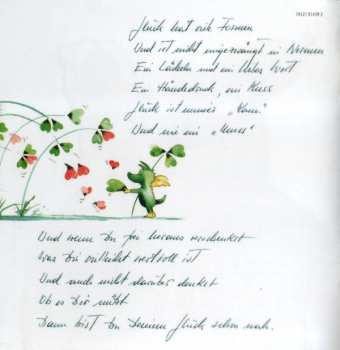 Glück hat viele Formen
Und ist nicht eingezwängt in Normen
Ein Lächeln und ein liebes Wort
Ein Händedruck, ein Kuss
Glück ist immer „Kann"
Und nie ein „Muss"
Und wenn Du frei heraus verschenkst
Was Dir vielleicht wertvoll ist
Und auch nicht darüber denkst
Ob es Dir nützt
Dann bist Du Deinem Glück schon nah.